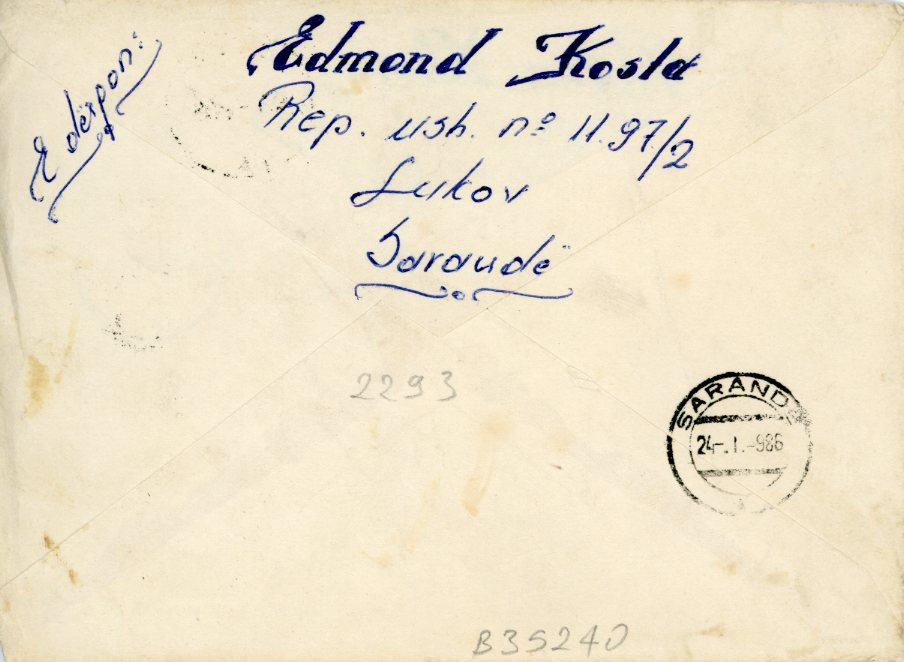 E dërgon:
Edmond Kosta
Rep. ush. nº 11.97/2
Lukov
Sarandë
2293
SARANDË
24-.1.-986
B35240